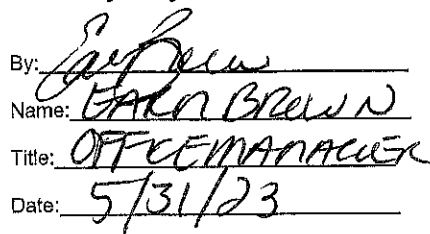 By:
Name: EARN BROWN
Title: OFFICEMANAGER
Date: 5/31/23